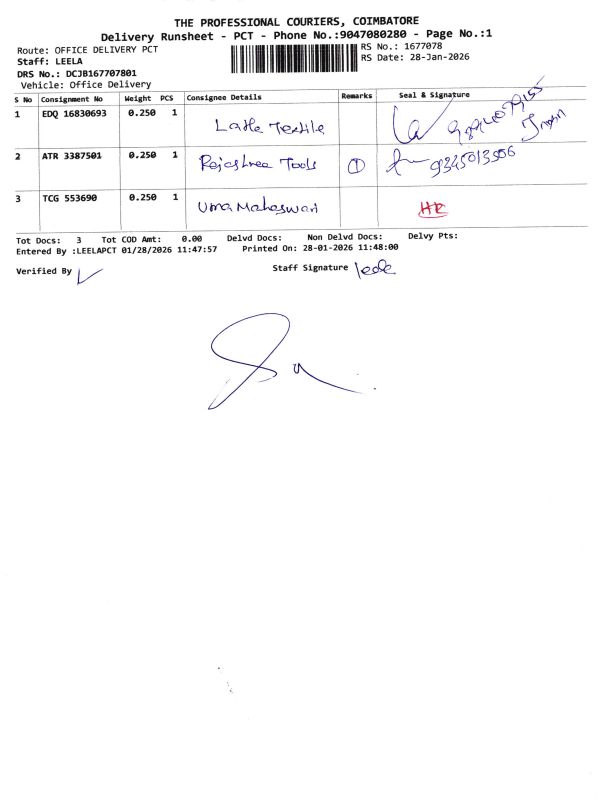 THE PROFESSIONAL COURIERS, COIMBATORE
Delivery Runsheet - PCT - Phone No.:9047080280 - Page No.:1
Route: OFFICE DELIVERY PCT
RS No.: 1677078
Staff: LEELA
RS Date: 28-Jan-2026
DRS No.: DCJB167707801
Vehicle: Office Delivery
S No Consignment No Weight PCS Consignee Details Remarks Seal & Signature
1 EDQ 16830693 0.250 1 Textile
2 ATR 3387501 0.250 1 Rajashree Tools 1 9345013556
3 TCG 553690 0.250 1 Uma Maheswari HR
Tot Docs: 3 Tot COD Amt: 0.00 Delvd Docs: Non Delvd Docs: Delvy Pts:
Entered By :LEELAPCT 01/28/2026 11:47:57 Printed On: 28-01-2026 11:48:00
Verified By
Staff Signature